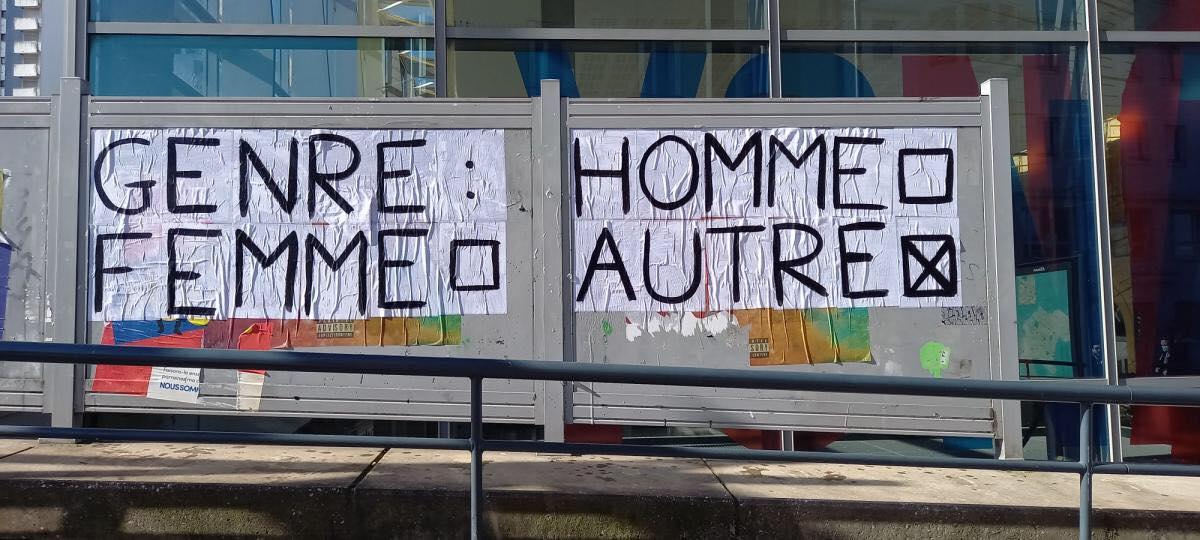 GENRE : HOMME ☐
FEMME ☐ AUTRE ☒
ADVISORY
NOUS SOM